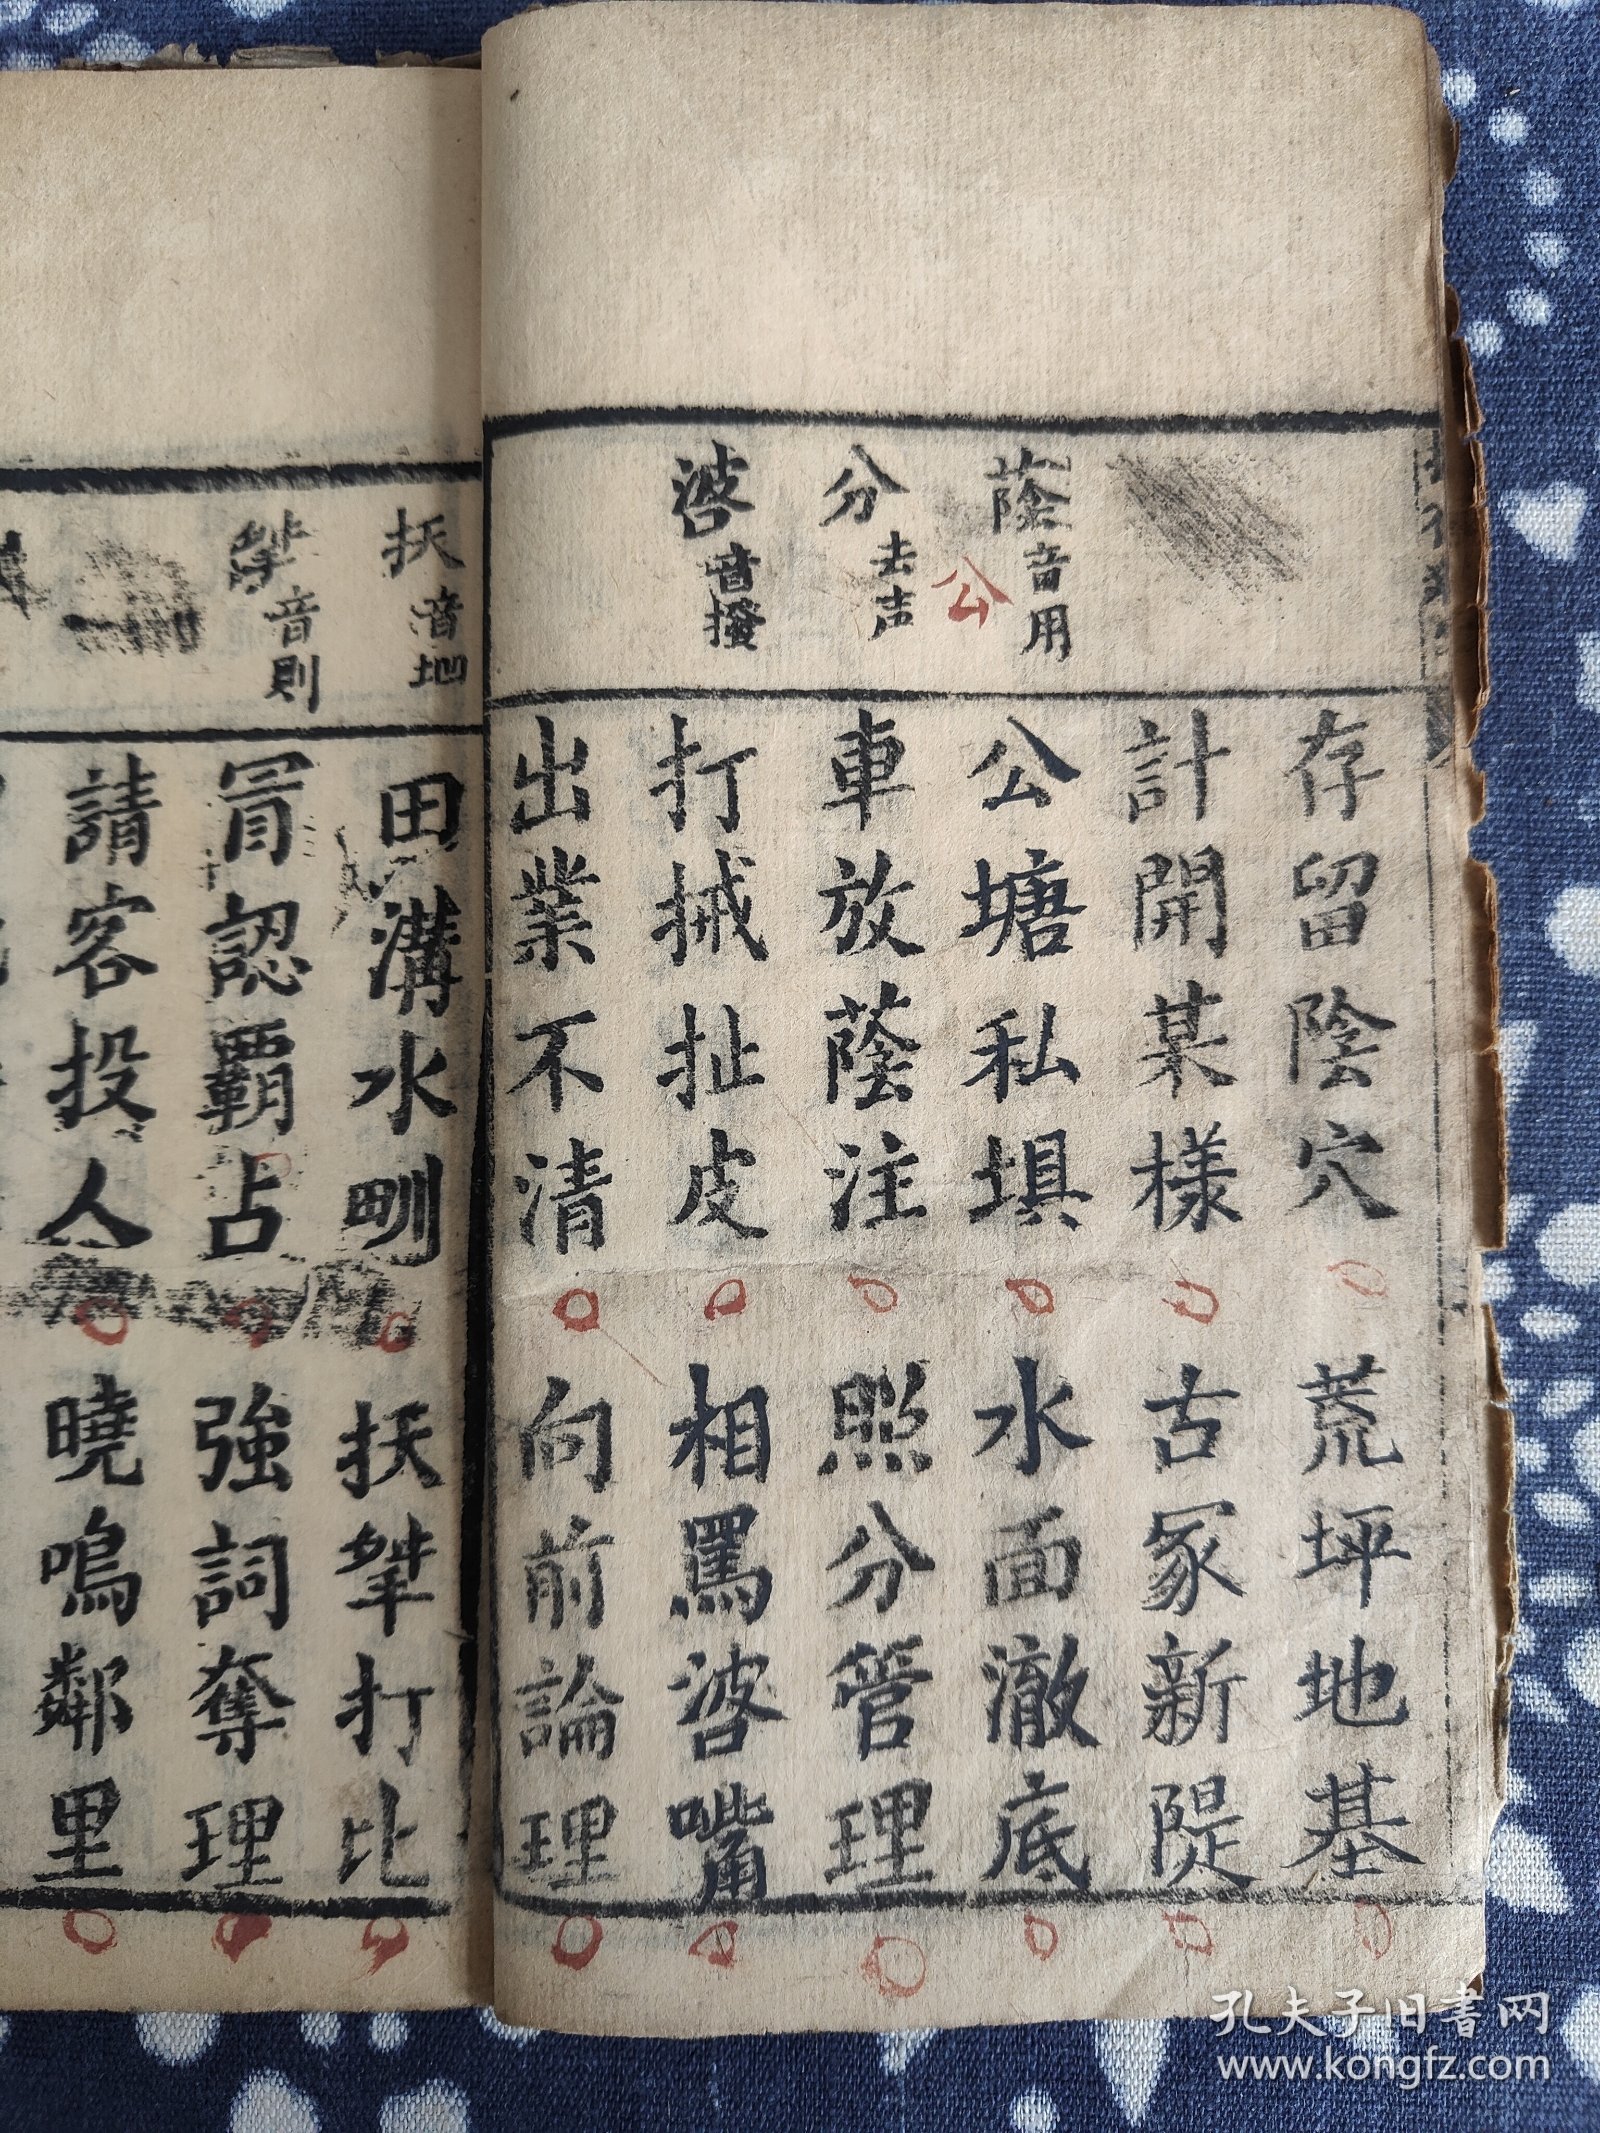 蔭音用
公
分去声
𠰏音撥
存留陰穴 荒坪地基
計開某樣 古冢新隄
公塘私埧 水面澈底
車放蔭注 照分管理
打搣扯皮 相罵嘴
出業不清 向前論理
音地
音則
田溝水㽛 打比
冐認覇占 強詞奪理
請客投人 曉鳴鄰里
孔夫子旧书网
www.kongfz.com